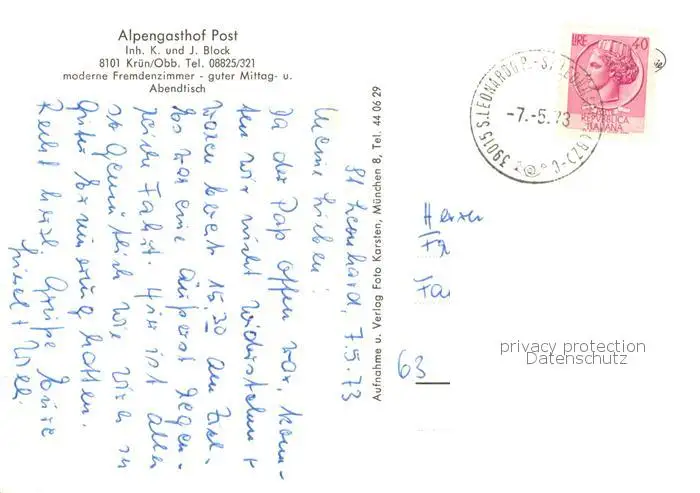 Alpengasthof Post
Inh. K. und J. Block
8101 Krün/Obb. Tel. 08825/321
moderne Fremdenzimmer - guter Mittag- u.
Abendtisch
St Leonhard, 7.5.73
Meine Lieben!
Da der Paß offen war, konn-
ten wir nicht widerstehen +
waren bereits 15,30 am Ziel.
Es war eine äußerst regen-
reiche Fahrt. Hier ist alles
so gemütlich wie wir in
guter Erinnerung hatten.
Recht herzl. Grüße Eure
+ Willi
Aufnahme u. Verlag Foto Karsten, München 8, Tel. 44 06 29
LIRE 40
REPUBBLICA
ITALIANA
39015 S. LEONARDO P. - ST. LEONHARD
-7.-5.73
Herrn
Fa
63
privacy protection
Datenschutz